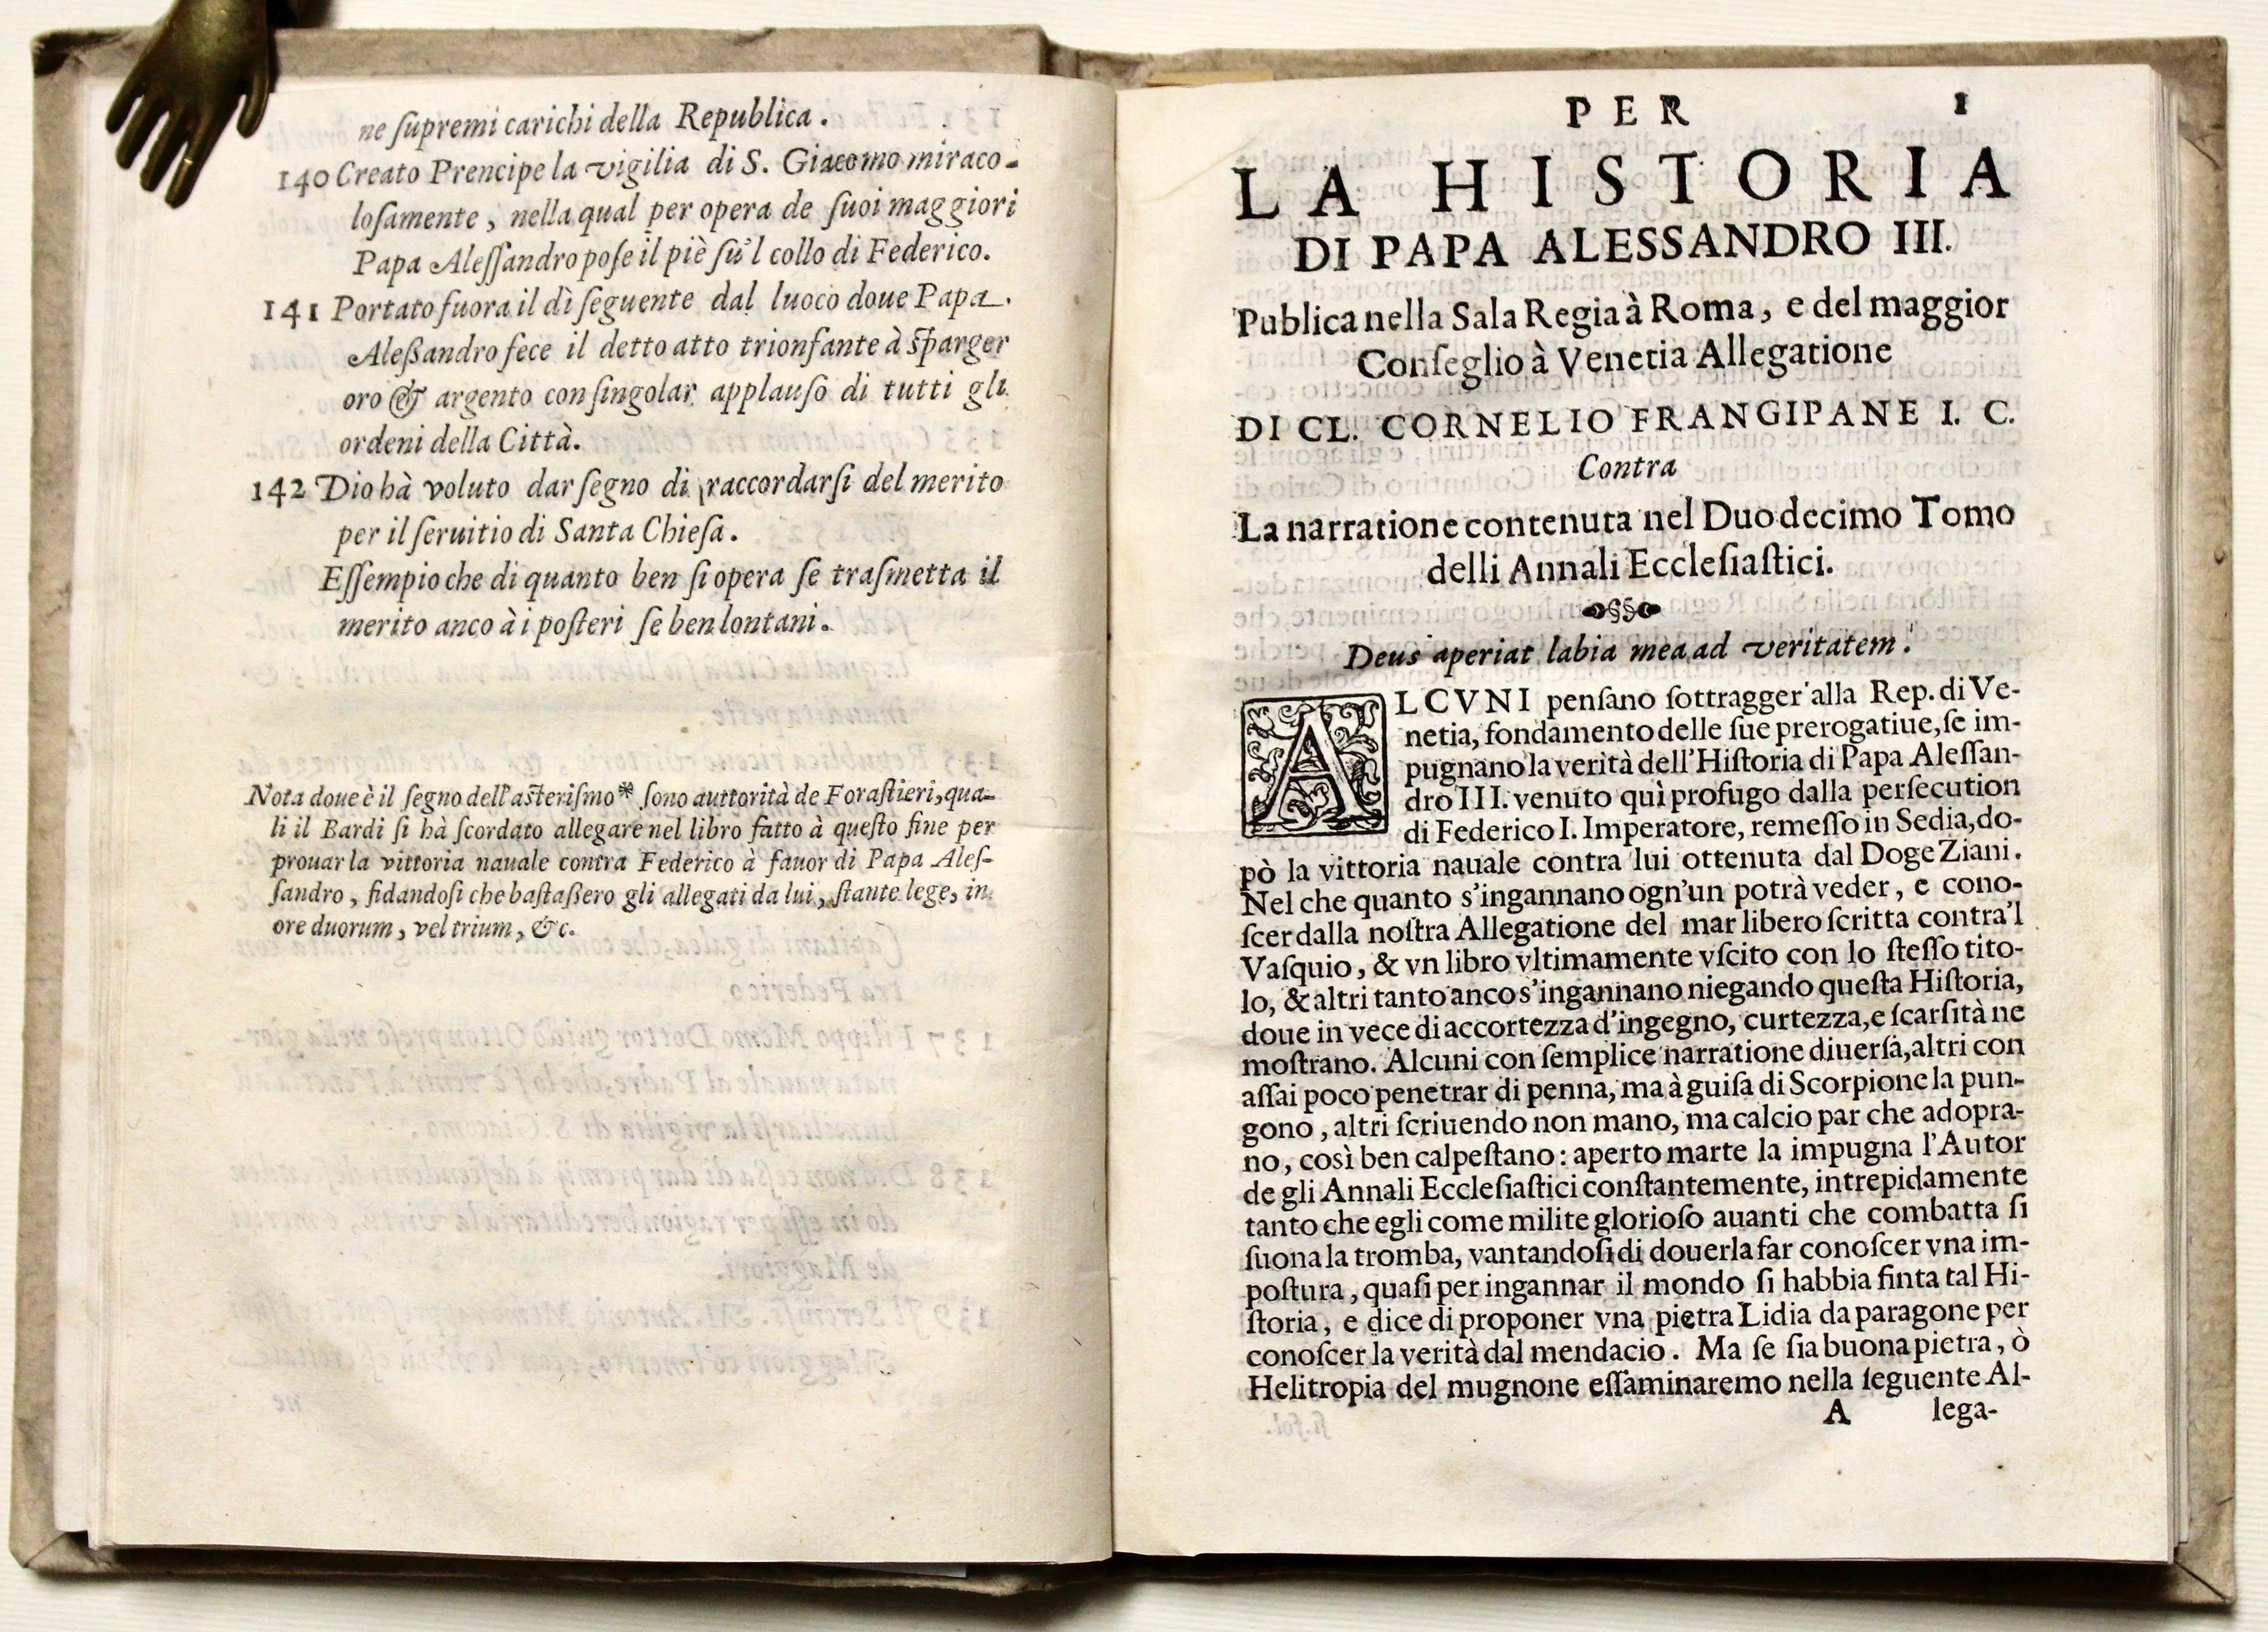 ne ſupremi carichi della Republica.
140 Creato Prencipe la vigilia di S. Giacomo miraco-
loſamente, nella qual per opera de ſuoi maggiori
Papa Aleſſandro poſe il piè ſu'l collo di Federico.
141 Portato fuora il dì ſeguente dal luoco doue Papa
Aleßandro fece il detto atto trionfante à ſparger
oro & argento con ſingolar applauſo di tutti gli
ordeni della Città.
142 Dio hà voluto dar ſegno di raccordarſi del merito
per il ſeruitio di Santa Chieſa.
Eſſempio che di quanto ben ſi opera ſe traſmetta il
merito anco à i poſteri ſe ben lontani.
Nota doue è il ſegno dell'aſteriſmo * ſono auttorità de Foraſtieri, qua-
li il Bardi ſi hà ſcordato allegare nel libro fatto à queſto fine per
prouar la vittoria nauale contra Federico à fauor di Papa Aleſ-
ſandro, fidandoſi che baſtaßero gli allegati da lui, ſtante lege, in
ore duorum, vel trium, &c.
PER 1
LA HISTORIA
DI PAPA ALESSANDRO III.
Publica nella Sala Regia à Roma, e del maggior
Conſeglio à Venetia Allegatione
DI CL. CORNELIO FRANGIPANE I. C.
Contra
La narratione contenuta nel Duodecimo Tomo
delli Annali Eccleſiaſtici.
Deus aperiat labia mea ad veritatem.
ALCVNI penſano ſottragger alla Rep. di Ve-
netia, fondamento delle ſue prerogatiue, ſe im-
pugnano la verità dell'Hiſtoria di Papa Aleſſan-
dro III. venuto quì profugo dalla perſecution
di Federico I. Imperatore, remeſſo in Sedia, do-
pò la vittoria nauale contra lui ottenuta dal Doge Ziani.
Nel che quanto s'ingannano ogn'un potrà veder, e cono-
ſcer dalla noſtra Allegatione del mar libero ſcritta contra'l
Vaſquio, & vn libro vltimamente vſcito con lo ſteſſo tito-
lo, & altri tanto anco s'ingannano niegando queſta Hiſtoria,
doue in vece di accortezza d'ingegno, curtezza, e ſcarſità ne
moſtrano. Alcuni con ſemplice narratione diuerſa, altri con
aſſai poco penetrar di penna, ma à guiſa di Scorpione la pun-
gono, altri ſcriuendo non mano, ma calcio par che adopra-
no, così ben calpeſtano: aperto marte la impugna l'Autor
de gli Annali Eccleſiaſtici conſtantemente, intrepidamente
tanto che egli come milite glorioſo auanti che combatta ſi
ſuona la tromba, vantandoſi di douerla far conoſcer vna im-
poſtura, quaſi per ingannar il mondo ſi habbia finta tal Hi-
ſtoria, e dice di proponer vna pietra Lidia da paragone per
conoſcer la verità dal mendacio. Ma ſe ſia buona pietra, ò
Helitropia del mugnone eſſaminaremo nella ſeguente Al-
A lega-